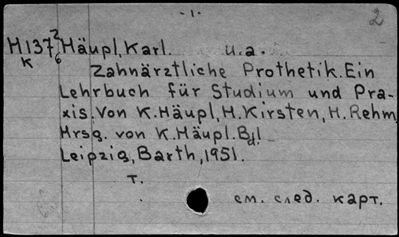 -1- 2
H 137 2/6 Häupl, Karl. u.a.
K
Zahnärztliche Prothetik. Ein
Lehrbuch für Studium und Pra-
xis. Von K. Häupl, H. Kirsten, H. Rehm
Hrsg. von K. Häupl. Bd. 1
Leipzig, Barth, 1951.
т.
см. след. карт.